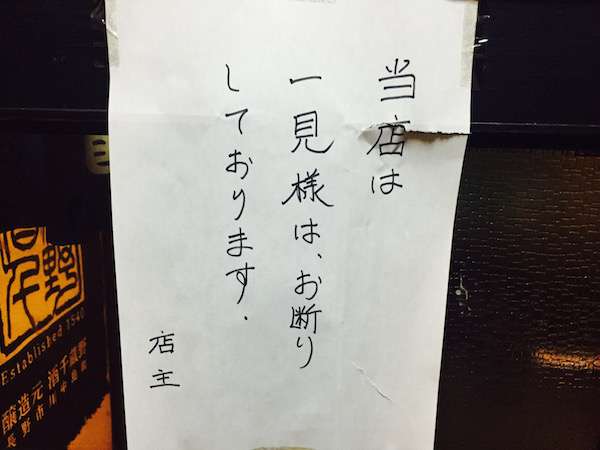 当店は
一見様は、お断り
しております.
店主
野
Established 1540
醸造元 酒千蔵野
長野市川中島町